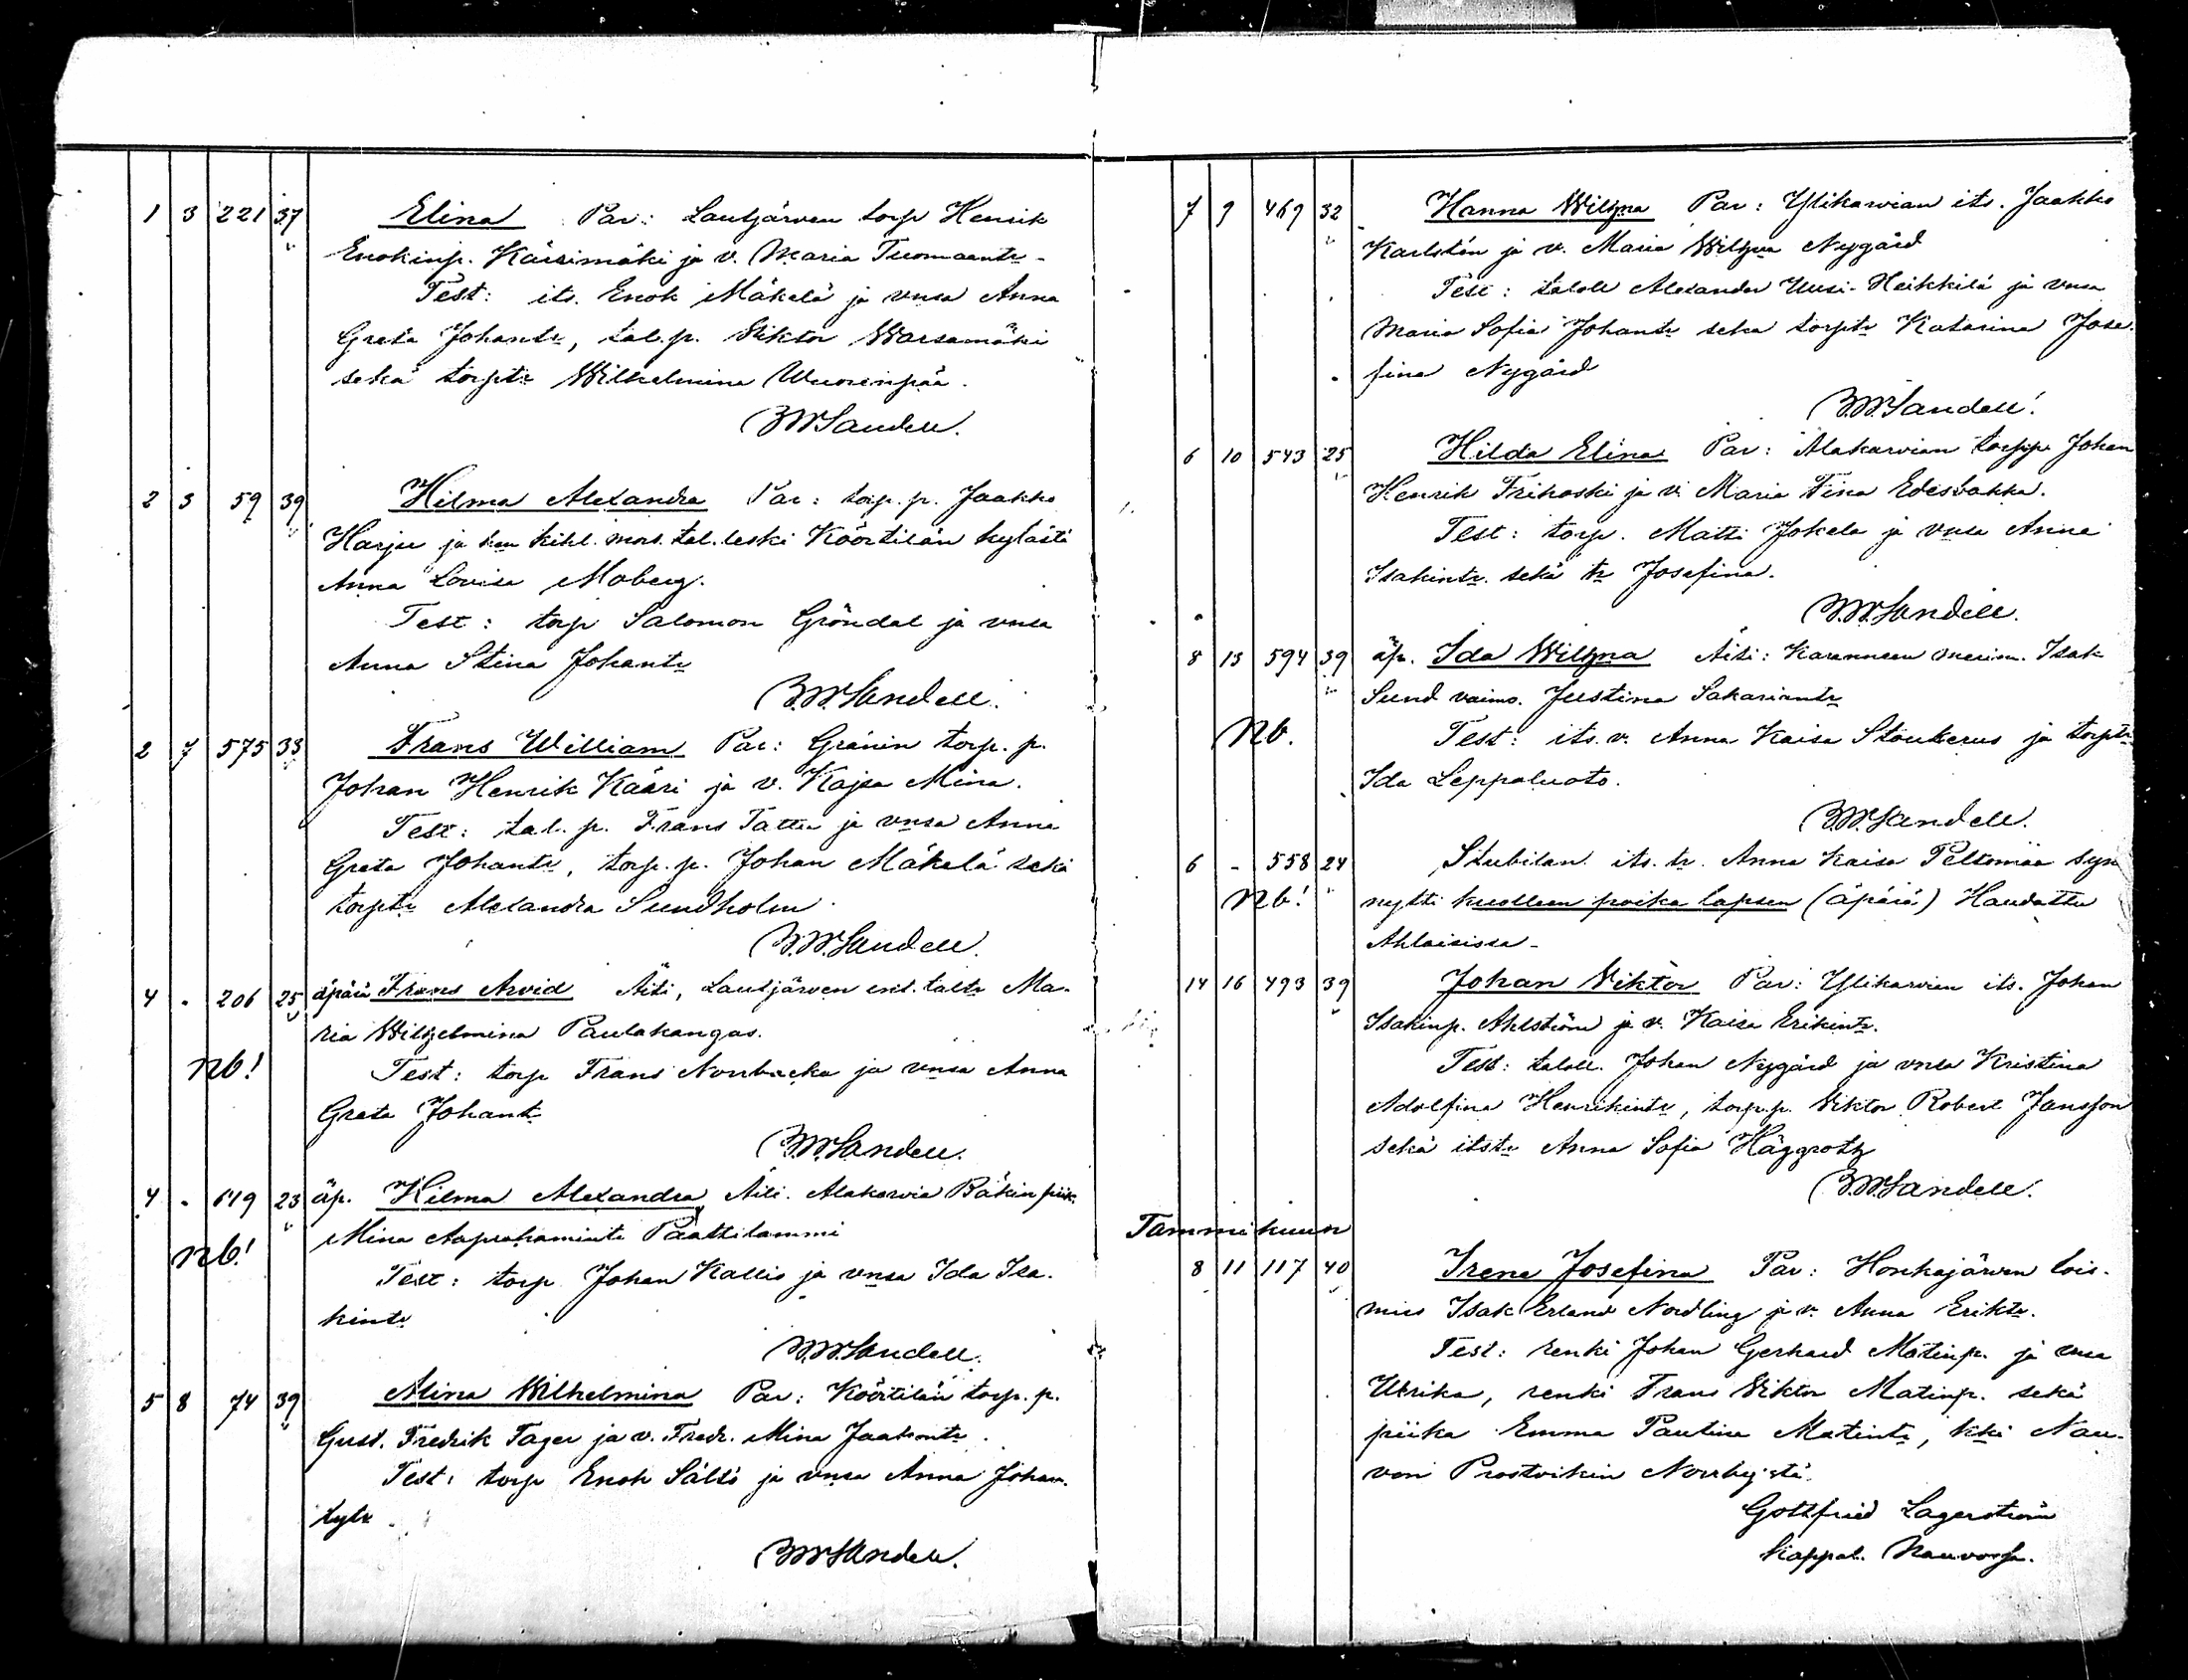 1 3 221 37 Elina Par: Lautjärven torp Henrik
Enokinp. Käärimäki ja v. Maria Tuomaantr.
Test: its. Enok Mäkelä ja vnsa Anna
Greta Johantr, tal.p. Viktor Warsamäki
sekä torptr Wilhelmina Wuorenpää.
Sandell.
2 3 59 39 Hilma Alexandra Par: torp.p. Jaakko
Harju ja hen kihl. mors. tal. leski Köörtilän kylästä
Anna Lovisa Moberg.
Test: torp Salomon Gröndal ja vnsa
Anna Stina Johantr
Sandell.
2 7 575 33 Frans William Par: Gränin torp.p.
Johan Henrik Kääri ja v. Kajsa Mina.
Test: tal.p. Frans Tattu ja vnsa Anna
Greta Johantr, torp.p. Johan Mäkelä sekä
torptr Alexandra Sundholm.
Sandell.
4 - 206 25 äpärä Frans Arvid Äiti, Lautjärven ent. taltr Ma-
ria Wilhelmina Paulakangas.
Nb!
Test: torp Frans Norrbacka ja vnsa Anna
Greta Johantr
Sandell.
4 - 619 23 äp. Hilma Alexandra Äiti. Alakarvia Bäkin piik.
Mina Paattilammi
Nb!
Test: torp Johan Kallio ja vnsa Ida Isa-
kintr
Sandell.
5 8 74 39 Alina Wilhelmina Par: Köörtilän torp.p.
Gust. Fredrik Fager ja v. Fredr. Mina Jaakontr.
Test: torp Enok Sältö ja vnsa Anna Johan-
tytr.
Sandell.
7 9 469 32 Hanna Wilhma Par: Ylikarvian its. Jaakko
Karlstén ja v. Maria Wilhma Nygård
Test: taloll Alexander Uusi-Heikkilä ja vnsa
Maria Sofia Johantr seka torptr Katarina Jose-
fina Nygård
Sandell!
6 10 543 25 Hilda Elina Par: Alakarvian torpp. Johan
Henrik Trihoski ja v. Maria Fina Edesbakka.
Test: torp. Matti Jokela ja vnsa Anna
Isakintr. sekä tr Josefina.
Sandell.
8 13 594 39 äp. Ida Wilhma Äiti: merim. Isak
Sund vaimo. Justina Sakariantr
Nb. Test: its. v. Anna Kaisa Stoukerus ja torptr
Ida Leppäluoto.
Sandell.
6 - 558 24 Stubilan. its. tr. Anna Kaisa Peltomaa syn
Nb! nytti kuolleen poika lapsen (äpärä) Haudattu
Ahlaisissa-
14 16 493 39 Johan Viktor Par: Ylikarvian its. Johan
Isakinp. Ahlström ja v. Kaisa Erikintr.
Test: taloll. Johan Nygård ja vnsa Kristina
Adolfina Henrikintr, torp.p. Viktor Robert Jansson
sekä itstr Anna Sofia Häggroth
Sandell.
Tammikuun
8 11 117 40 Irene Josefina Par: Honkajärven lois-
mies Isak Erland Nordling ja v. Anna Eriktr.
Test: renki Johan Gerhard Matinp. ja vnsa
Ulrika, renki Frans Viktor Matinp. sekä
piika Emma Paulina Matintr, kki Nau-
von Prostvikin Norrby'stä.
Gottfried Lagerström
Kappal. Nauvossa.